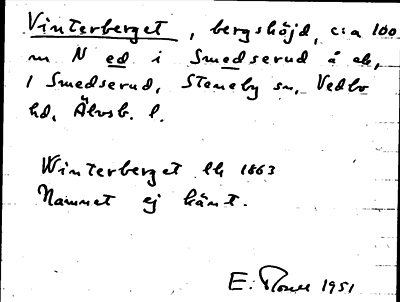 Vinterberget, bergshöjd, c:a 100
m N ed i Smedserud å ek,
1 Smedserud, Steneby sn, Vedbo
hd, Älvsb. l.
Winterberget lk 1863
Namnet ej känt.
E. 1951